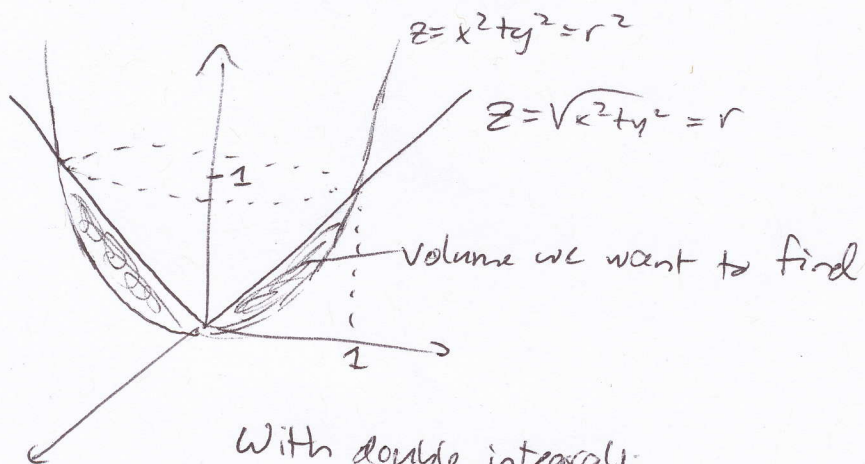 z=x²+y²=r²
z=√x²+y² = r
1
volume we want to find
1
With double integral: